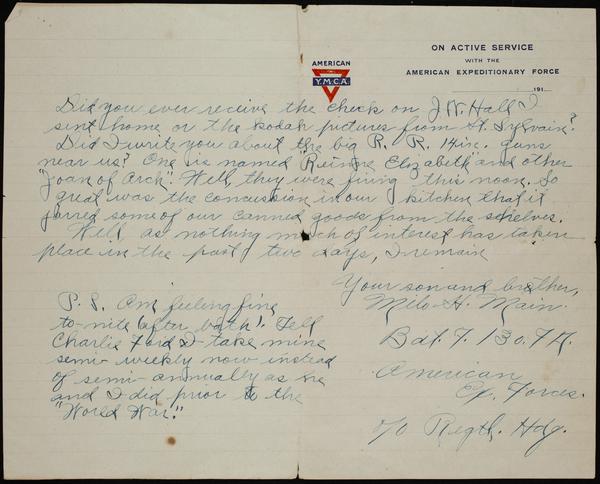 AMERICAN
Y.M.C.A.
ON ACTIVE SERVICE
WITH THE
AMERICAN EXPEDITIONARY FORCE
191
Did you ever receive the check on J.W. Hall I
sent home or the kodak pictures from St. Sylvain?
Did I write you about the big R. R. 14 inc. guns
near us? One is named "Elizabeth and other
"Joan of Arch". Well, they were firing this noon. So
great was the concussion in our kitchen that it
jarred some of our canned goods from the shelves.
Well, as nothing much of interest has taken
place in the past two days, I remain
Your son and brother,
Milo H. Main.
Bat. F. 130. F.A.
American
Ex. Forces.
c/o Regtl. Hdq.
P. S. Am feeling fine
to-nite (after bath). Tell
Charlie Ford I take mine
semi-weekly now instead
of semi-annually as he
and I did prior to the
"World War."